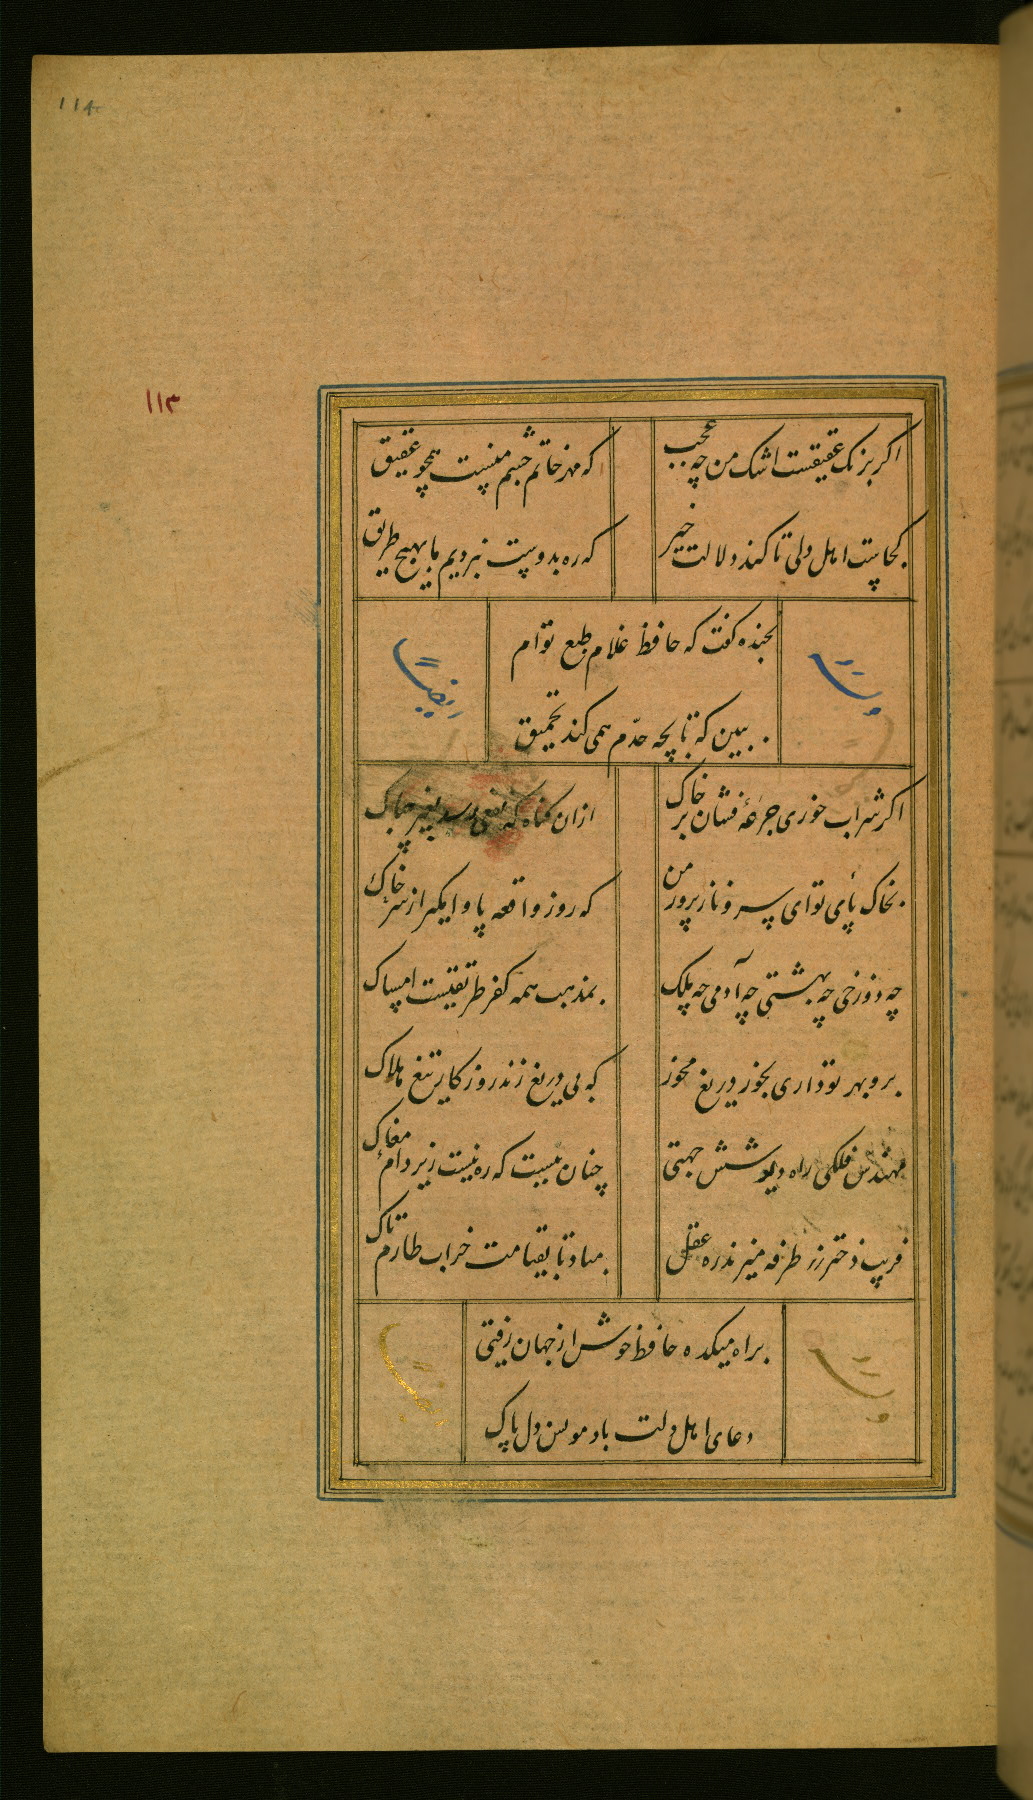 ۱۱۴
۱۱۳
اکر برنک عقیقست اشک من چه عجب
که مهر خاتم چشم منست همچو عقیق
کجاست اهل دلی تا کند دلالت خیر
که ره بدوست نبردیم ما بهیچ طریق
بخنده کفت که حافظ غلام طبع توام
ببین که تا بچه حدم همی کند تحمیق
وله
ایضاً
اکر شراب خوری جرعهٔ فشان بر خاک
ازان کناه که نفعی رسد بغیر چه باک
بخاک پای تو ای سرو نازپرور من
که روز واقعه پا وامکیر از سر خاک
چه دوزخی چه بهشتی چه آدمی چه ملک
بمذهب همه کفر طریقتست امساک
برو بهر تو داری بخور دریغ مخور
که بی دریغ زند روزکار تیغ هلاک
مهندس فلکی راه دیر شش جهتی
چنان ببست که ره نیست زیر دام مغاک
فریب دختر رز طرفه میزند ره عقل
مباد تا بقیامت خراب طارم تاک
براه میکده حافظ خوش از جهان رفتی
دعای اهل دلت باد مونس دل پاک